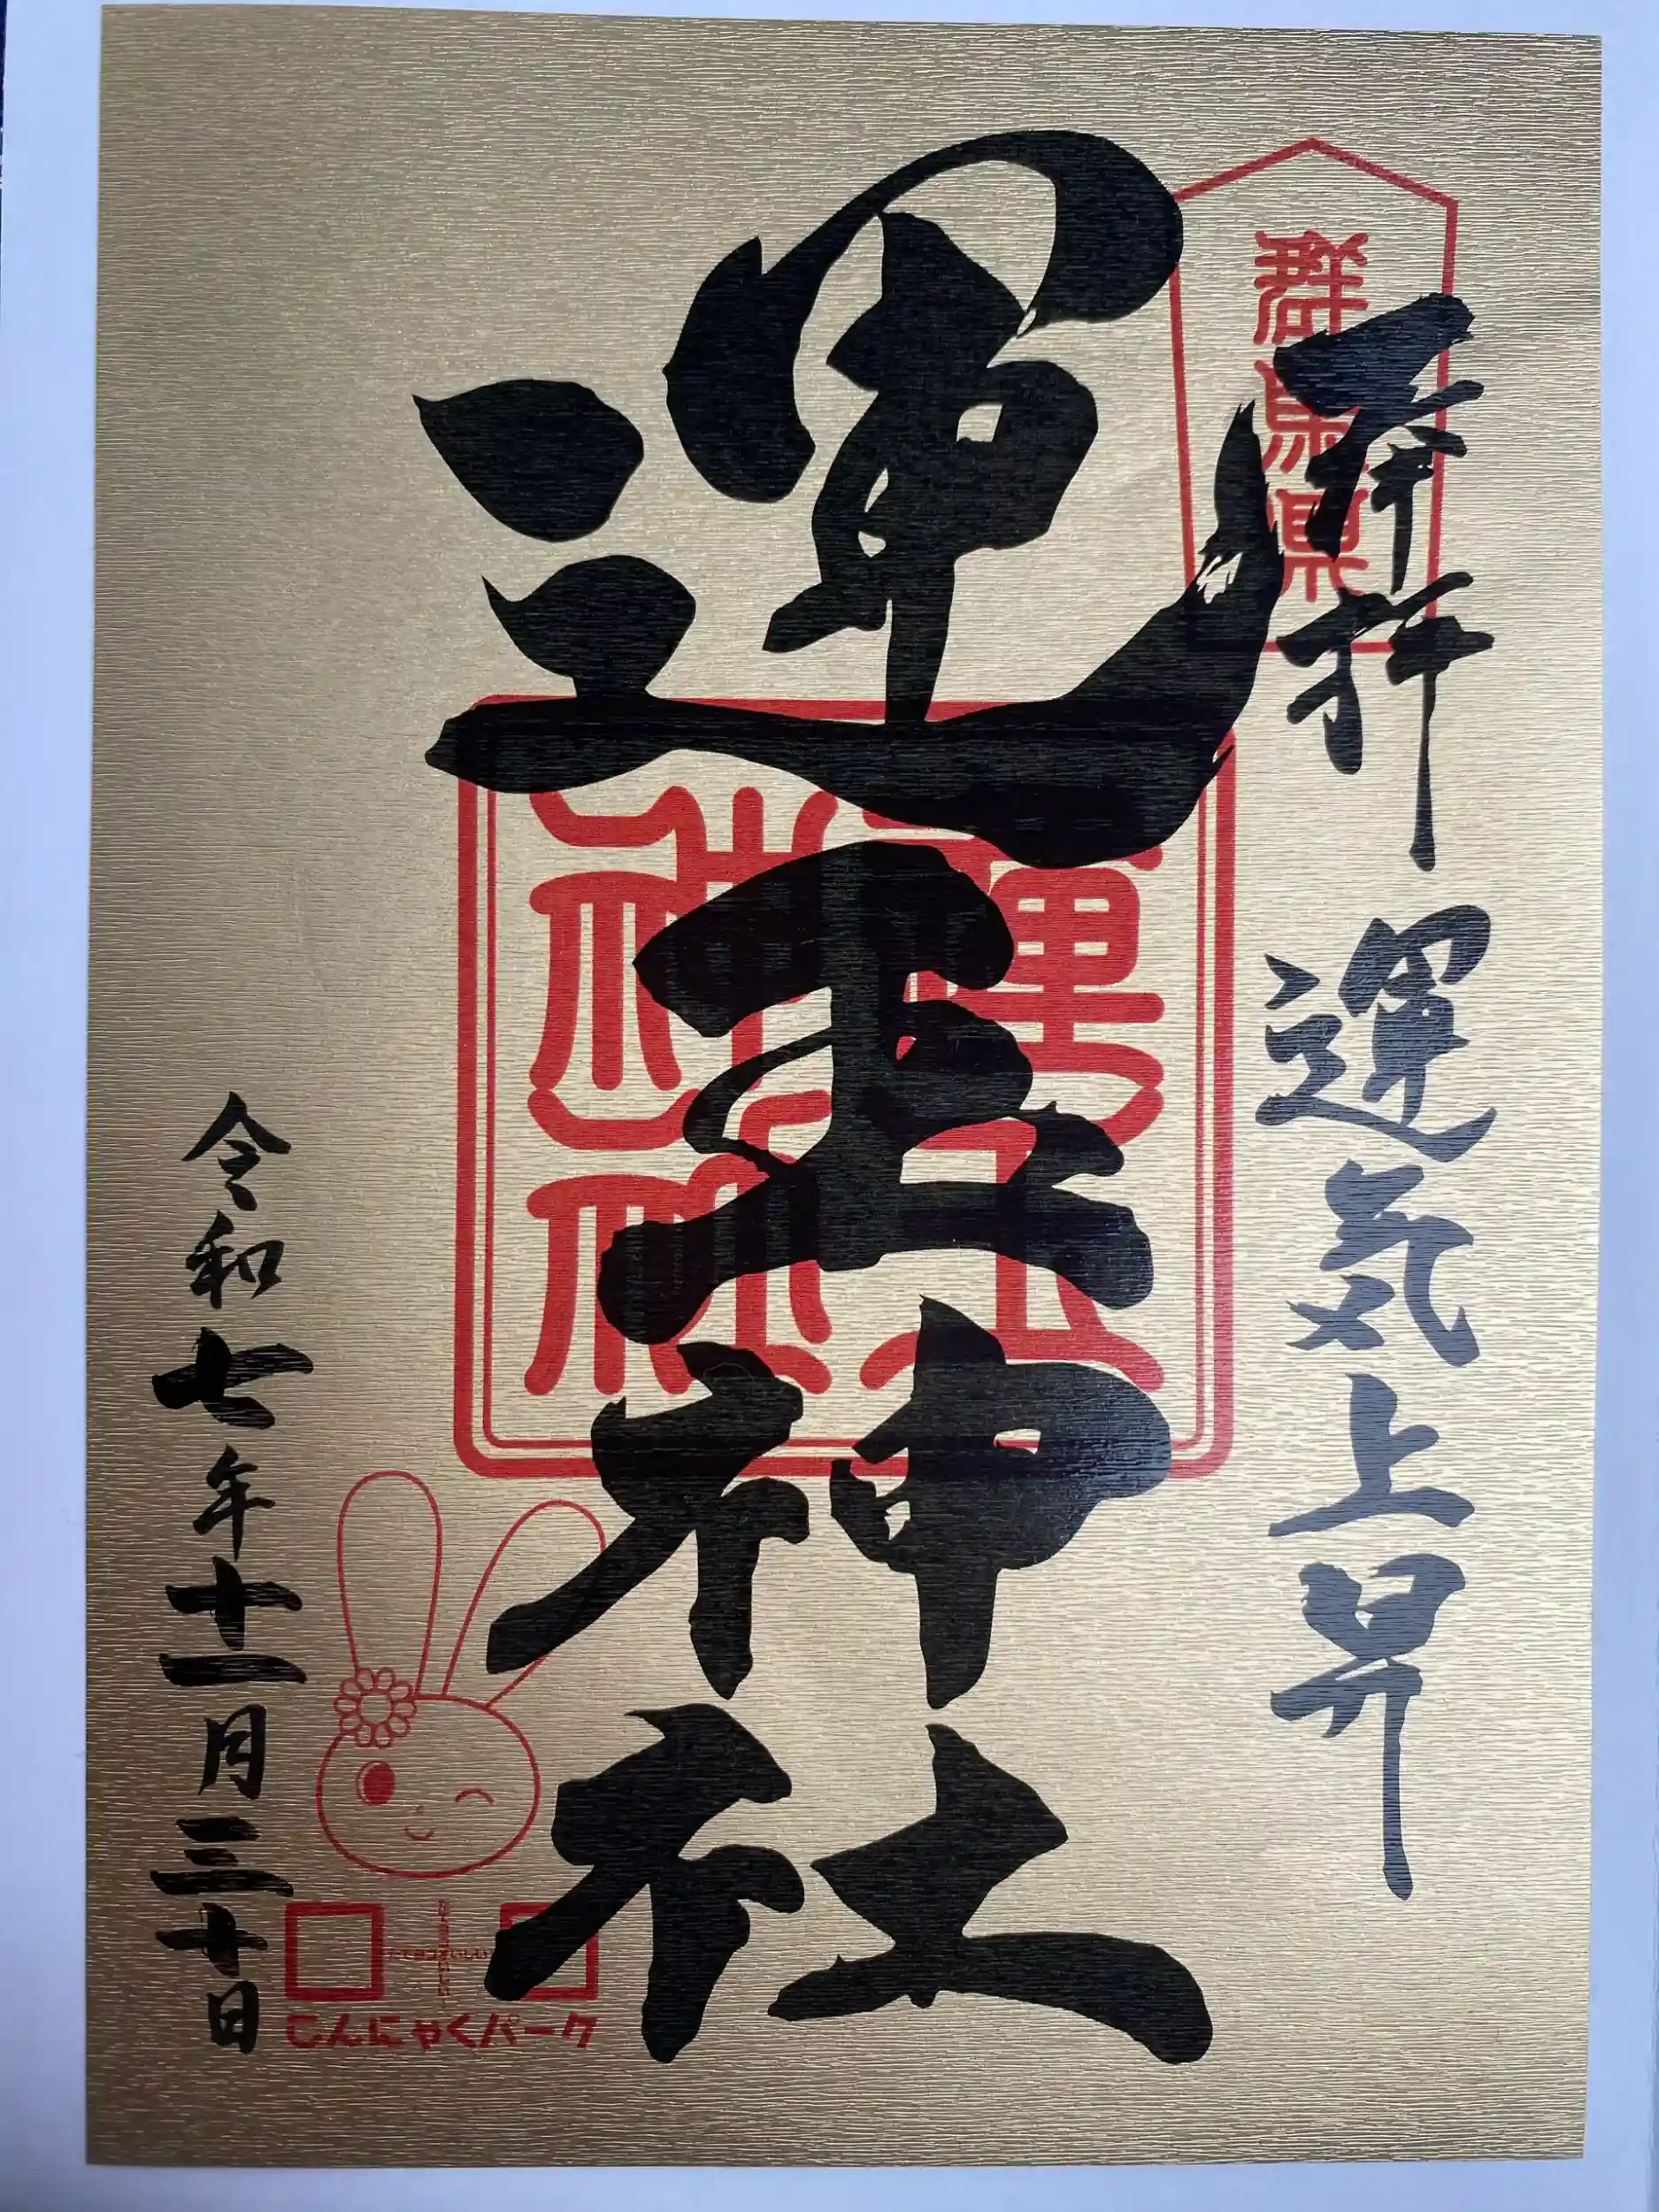 群馬県
奉拝
運気上昇
運玉神社
運玉神社
令和七年十一月三十日
こんにゃくパーク